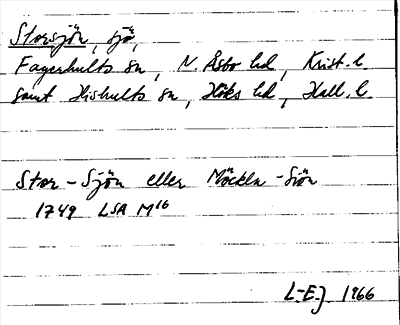 Storsjön, sjö,
Fagerhults sn, N. Åsbo hd, Krist. l.
samt Hishults sn, Höks hd, Hall. l.
Stor-Sjön eller Möckla-Siön
1749 LSA M16
L-E.J. 1966